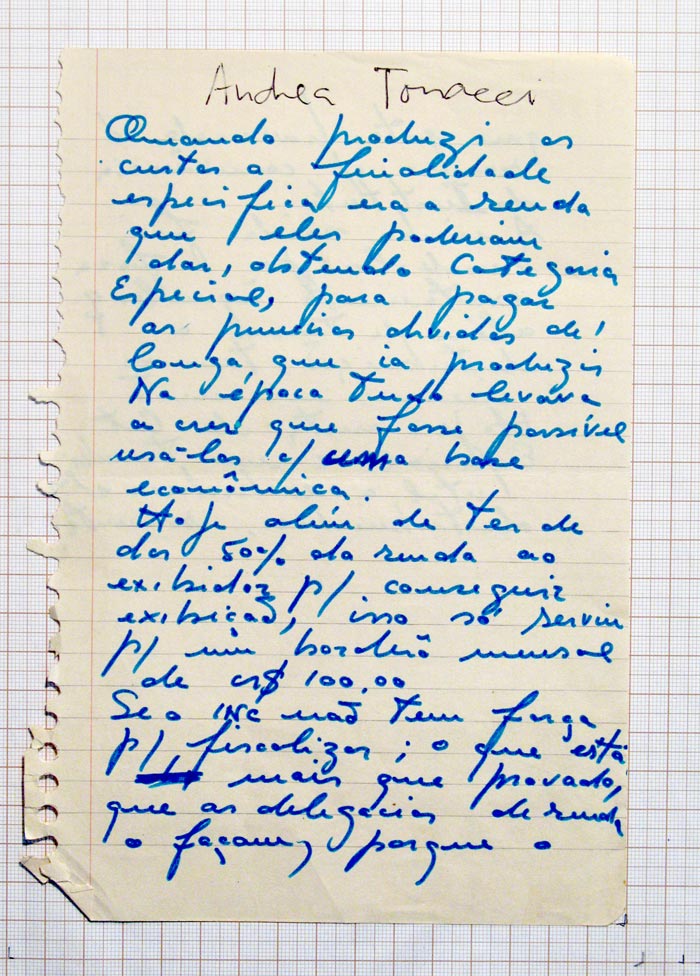 Andrea Tonacci
Quando produzi os
curtos a finalidade
especifica era a renda
que eles poderiam
dar, obtendo Categoria
Especial, para pagar
as primeiras dividas de
longa, que ia produzir
Na época tudo levava
a crer que fosse possível
usá-los c/ uma base
econômica.
Hoje além de ter de
dar 50% da renda ao
exibidor p/ conseguir
exibição, isso só serviu
p/ um borderô mensal
de cr$ 100,00
Se o INC não tem força
p/ fiscalizar; o que está
mais que provado,
que as delegacias de renda
o façam, porque o